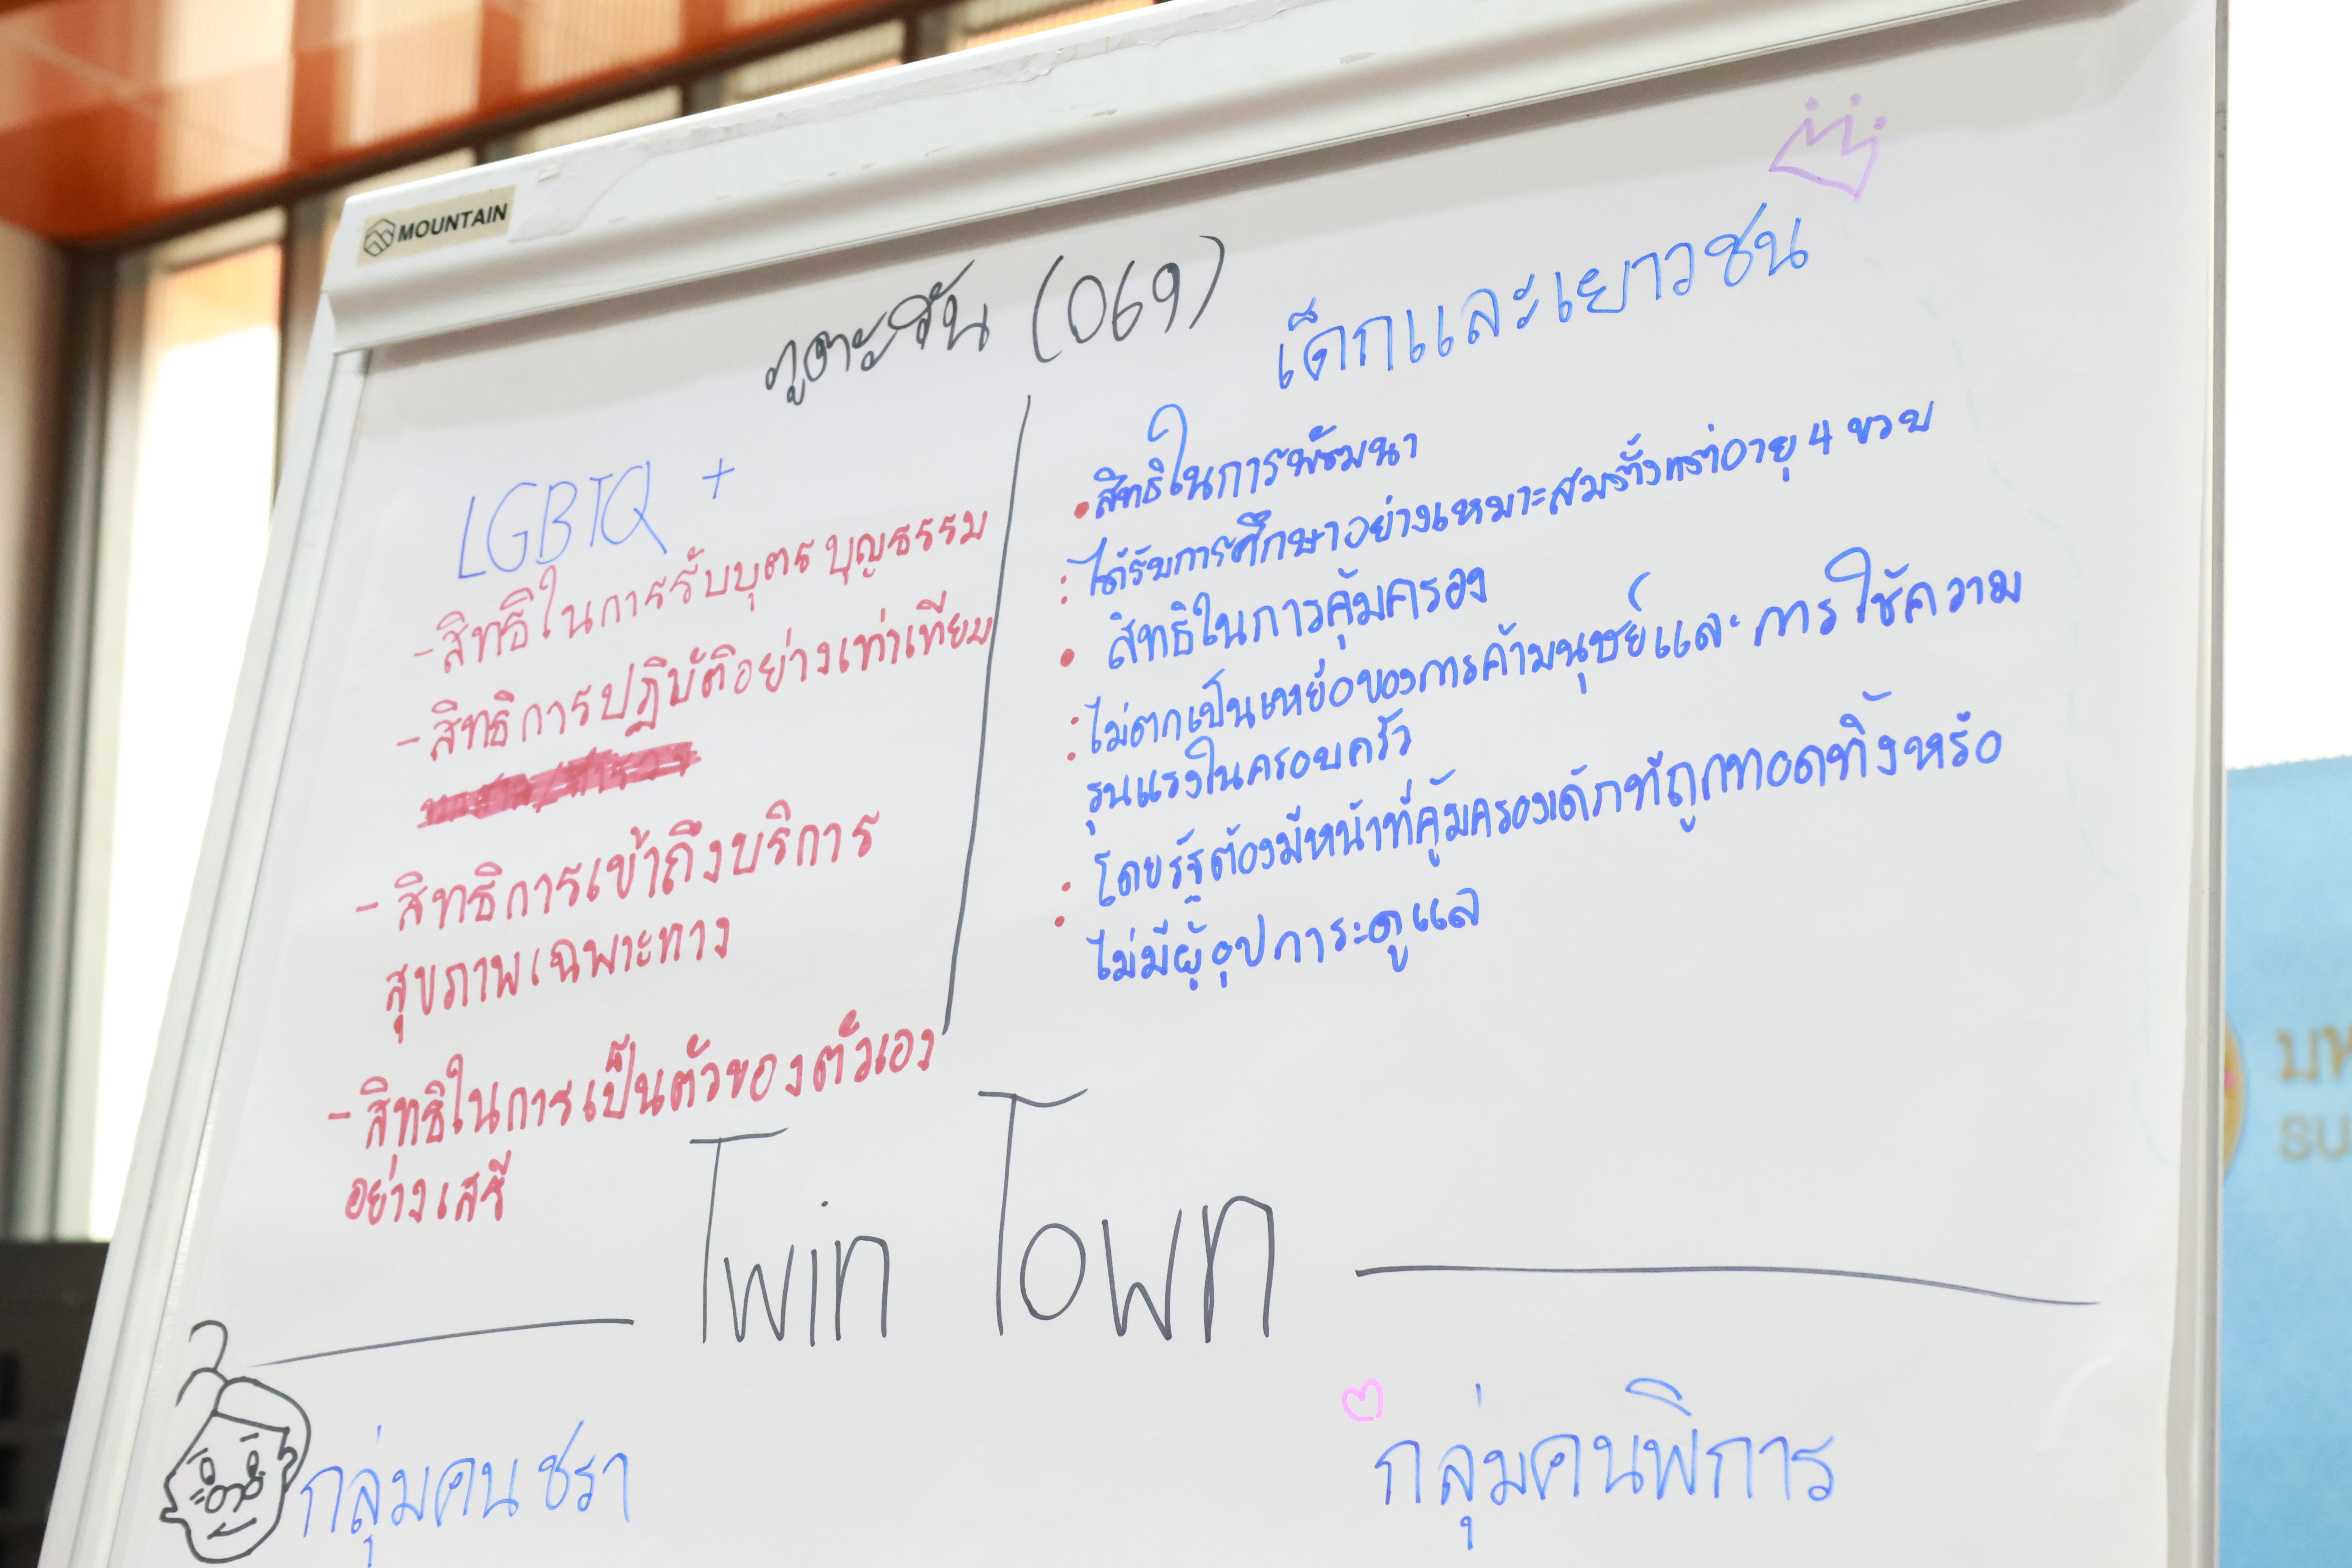 MOUNTAIN
ภูตะวัน (069)
LGBTQ +
- สิทธิในการรับบุตรบุญธรรม
- สิทธิการปฏิบัติอย่างเท่าเทียม
- สิทธิการเข้าถึงบริการ
สุขภาพเฉพาะทาง
- สิทธิในการเป็นตัวของตัวเอง
อย่างเสรี
เด็กและเยาวชน
• สิทธิในการพัฒนา
: ได้รับการศึกษาอย่างเหมาะสมตั้งแต่อายุ 4 ขวบ
• สิทธิในการคุ้มครอง
: ไม่ตกเป็นเหยื่อของการค้ามนุษย์และการใช้ความ
รุนแรงในครอบครัว
: โดยรัฐต้องมีหน้าที่คุ้มครองเด็กที่ถูกทอดทิ้งหรือ
ไม่มีผู้อุปการะดูแล
Twin Town
กลุ่มคนชรา
กลุ่มคนพิการ